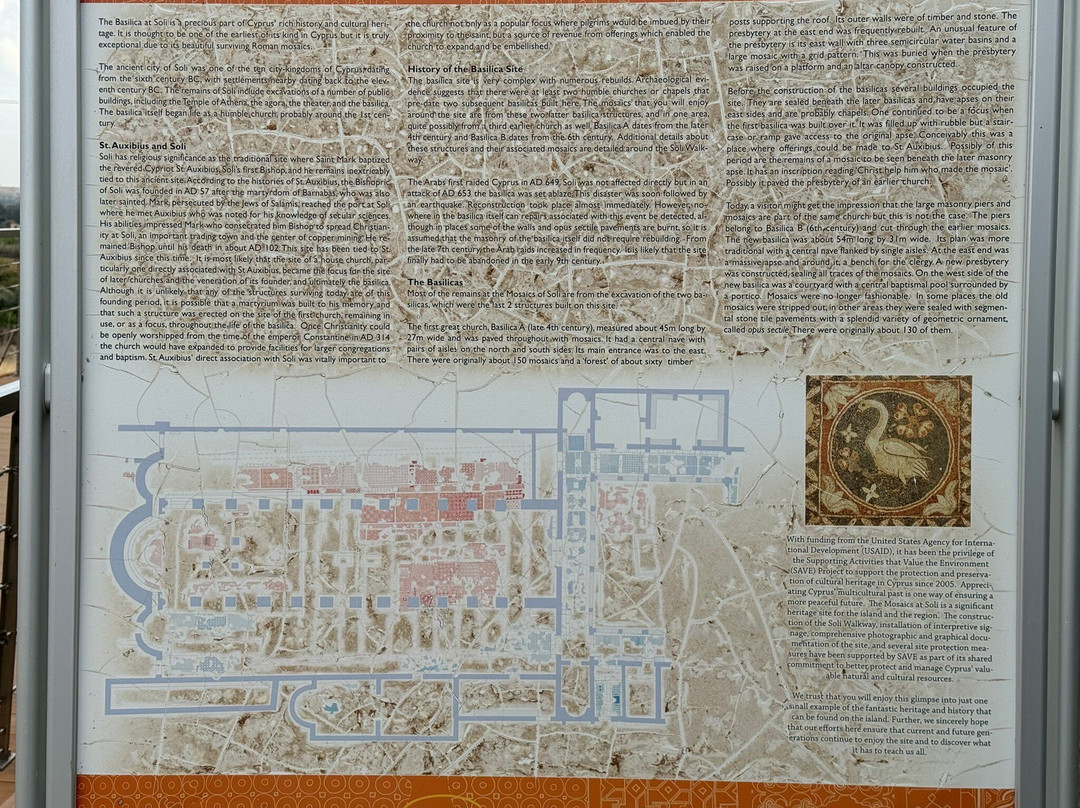 The Basilica at Soli is a precious part of Cyprus' rich history and cultural heri-
tage. It is thought to be one of the earliest of its kind in Cyprus but it is truly
exceptional due to its beautiful surviving Roman mosaics.
The ancient city of Soli was one of the ten city-kingdoms of Cyprus dating
from the sixth century BC, with settlements nearby dating back to the elev-
enth century BC. The remains of Soli include excavations of a number of public
buildings, including the Temple of Athena, the agora, the theater, and the basilica.
The basilica itself began life as a humble church, probably around the 1st cen-
tury.
St. Auxibius and Soli
Soli has religious significance as the traditional site where Saint Mark baptized
the revered Cypriot St. Auxibius, Soli's first Bishop, and he remains inextricably
tied to this ancient site. According to the histories of St. Auxibius, the Bishopric
of Soli was founded in AD 57 after the martyrdom of Barnabas, who was also
later sainted. Mark, persecuted by the Jews of Salamis, reached the port at Soli
where he met Auxibius who was noted for his knowledge of secular sciences.
His abilities impressed Mark who consecrated him Bishop to spread Christian-
ity at Soli, an important trading town and the center of copper mining. He re-
mained Bishop until his death in about AD 102. This site has been tied to St.
Auxibius since this time. It is most likely that the site of a house church, par-
ticularly one directly associated with St Auxibius, became the focus for the site
of later churches and the veneration of its founder, and ultimately the basilica.
Although it is unlikely that any of the structures surviving today are of this
founding period, it is possible that a martyrium was built to his memory, and
that such a structure was erected on the site of the first church, remaining in
use, or as a focus, throughout the life of the basilica. Once Christianity could
be openly worshipped from the time of the emperor Constantine in AD 314
the church would have expanded to provide facilities for larger congregations
and baptism. St. Auxibius' direct association with Soli was vitally important to
the church not only as a popular focus where pilgrims would be imbued by their
proximity to the saint, but a source of revenue from offerings which enabled the
church to expand and be embellished.
History of the Basilica Site
The basilica site is very complex with numerous rebuilds. Archaeological evi-
dence suggests that there were at least two humble churches or chapels that
pre-date two subsequent basilicas built here. The mosaics that you will enjoy
around the site are from these two latter basilica structures, and in one area,
quite possibly from a third earlier church as well. Basilica A dates from the later
4th century and Basilica B dates from the 6th century. Additional details about
these structures and their associated mosaics are detailed around the Soli Walk-
way.
The Arabs first raided Cyprus in AD 649, Soli was not affected directly but in an
attack of AD 653 the basilica was set ablaze. This disaster was soon followed by
an earthquake. Reconstruction took place almost immediately. However, no-
where in the basilica itself can repairs associated with this event be detected, al-
though in places some of the walls and opus sectile pavements are burnt, so it is
assumed that the masonry of the basilica itself did not require rebuilding. From
the late 7th century the Arab raids increased in frequency. It is likely that the site
finally had to be abandoned in the early 9th century.
The Basilicas
Most of the remains at the Mosaics of Soli are from the excavation of the two ba-
silicas, which were the last 2 structures built on this site.
The first great church, Basilica A (late 4th century), measured about 45m long by
27m wide and was paved throughout with mosaics. It had a central nave with
pairs of aisles on the north and south sides. Its main entrance was to the east.
There were originally about 150 mosaics and a 'forest' of about sixty timber
posts supporting the roof. Its outer walls were of timber and stone. The
presbytery at the east end was frequently rebuilt. An unusual feature of
the presbytery is its east wall with three semicircular water basins and a
large mosaic with a grid pattern. This was buried when the presbytery
was raised on a platform and an altar canopy constructed.
Before the construction of the basilicas several buildings occupied the
site. They are sealed beneath the later basilicas and have apses on their
east sides and are probably chapels. One continued to be a focus when
the first basilica was built over it. It was filled up with rubble but a stair-
case or ramp gave access to the original apse. Conceivably this was a
place where offerings could be made to St Auxibius. Possibly of this
period are the remains of a mosaic to be seen beneath the later masonry
apse. It has an inscription reading 'Christ help him who made the mosaic'.
Possibly it paved the presbytery of an earlier church.
Today, a visitor might get the impression that the large masonry piers and
mosaics are part of the same church but this is not the case. The piers
belong to Basilica B (6th century) and cut through the earlier mosaics.
The new basilica was about 54m long by 31m wide. Its plan was more
traditional with a central nave flanked by single aisles. At the east end was
a massive apse and around it, a bench for the clergy. A new presbytery
was constructed, sealing all traces of the mosaics. On the west side of the
new basilica was a courtyard with a central baptismal pool surrounded by
a portico. Mosaics were no longer fashionable. In some places the old
mosaics were stripped out, in other areas they were sealed with segmen-
tal stone tile pavements with a splendid variety of geometric ornament,
called opus sectile. There were originally about 130 of them.
With funding from the United States Agency for Interna-
tional Development (USAID), it has been the privilege of
the Supporting Activities that Value the Environment
(SAVE) Project to support the protection and preserva-
tion of cultural heritage in Cyprus since 2005. Appreci-
ating Cyprus' multicultural past is one way of ensuring a
more peaceful future. The Mosaics at Soli is a significant
heritage site for the island and the region. The construc-
tion of the Soli Walkway, installation of interpretive sig-
nage, comprehensive photographic and graphical docu-
mentation of the site, and several site protection mea-
sures have been supported by SAVE as part of its shared
commitment to better protect and manage Cyprus' valu-
able natural and cultural resources.
We trust that you will enjoy this glimpse into just one
small example of the fantastic heritage and history that
can be found on the island. Further, we sincerely hope
that our efforts here ensure that current and future gen-
erations continue to enjoy the site and to discover what
it has to teach us all.